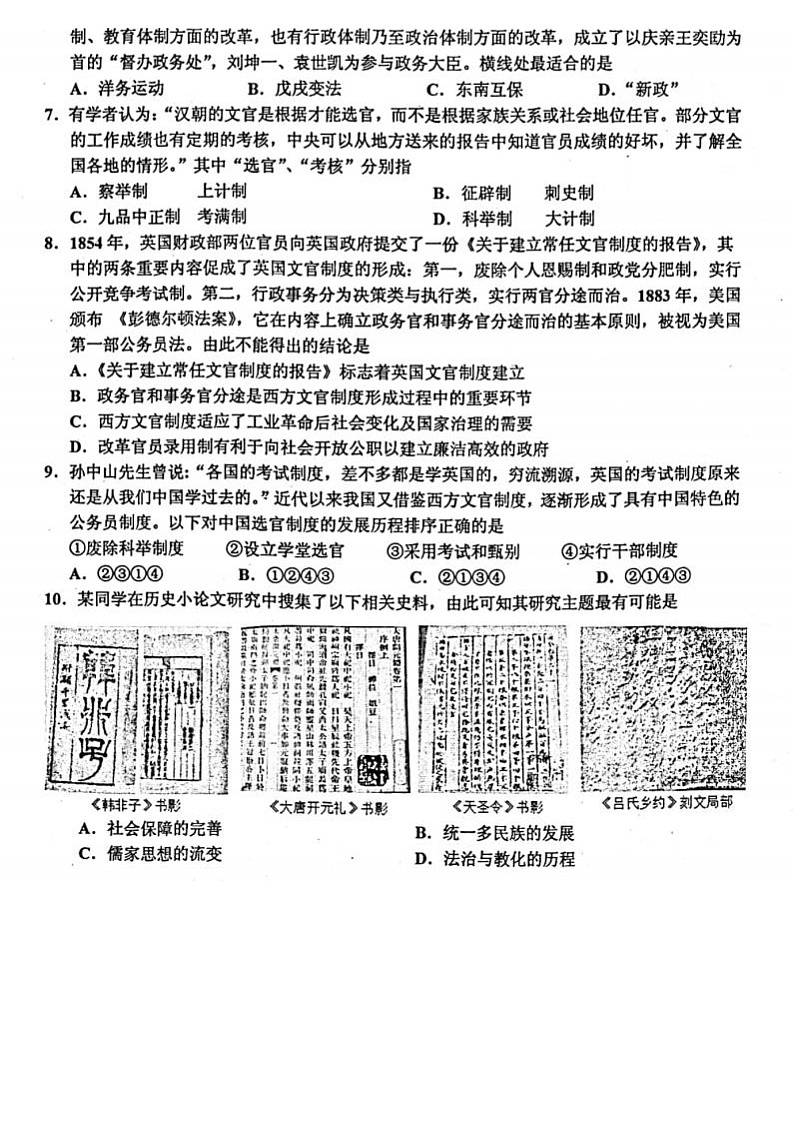 制、教育体制方面的改革，也有行政体制乃至政治体制方面的改革，成立了以庆亲王奕劻为
首的“督办政务处”，刘坤一、袁世凯为参与政务大臣。横线处最适合的是
A．洋务运动 B．戊戌变法 C．东南互保 D．“新政”
7．有学者认为：“汉朝的文官是根据才能选官，而不是根据家族关系或社会地位任官。部分文官
的工作成绩也有定期的考核，中央可以从地方送来的报告中知道官员成绩的好坏，并了解全
国各地的情形。”其中“选官”、“考核”分别指
A．察举制 上计制 B．征辟制 刺史制
C．九品中正制 考满制 D．科举制 大计制
8．1854 年，英国财政部两位官员向英国政府提交了一份《关于建立常任文官制度的报告》，其
中的两条重要内容促成了英国文官制度的形成：第一，废除个人恩赐制和政党分肥制，实行
公开竞争考试制。第二，行政事务分为决策类与执行类，实行两官分途而治。1883 年，美国
颁布 《彭德尔顿法案》，它在内容上确立政务官和事务官分途而治的基本原则，被视为美国
第一部公务员法。由此不能得出的结论是
A．《关于建立常任文官制度的报告》标志着英国文官制度建立
B．政务官和事务官分途是西方文官制度形成过程中的重要环节
C．西方文官制度适应了工业革命后社会变化及国家治理的需要
D．改革官员录用制有利于向社会开放公职以建立廉洁高效的政府
9．孙中山先生曾说：“各国的考试制度，差不多都是学英国的，穷流溯源，英国的考试制度原来
还是从我们中国学过去的。”近代以来我国又借鉴西方文官制度，逐渐形成了具有中国特色的
公务员制度。以下对中国选官制度的发展历程排序正确的是
①废除科举制度 ②设立学堂选官 ③采用考试和甄别 ④实行干部制度
A．②③①④ B．①②④③ C．②①③④ D．②①④③
10．某同学在历史小论文研究中搜集了以下相关史料，由此可知其研究主题最有可能是
韩非子
大唐开元礼卷第一
序例上
《韩非子》书影 《大唐开元礼》书影 《天圣令》书影 《吕氏乡约》刻文局部
A．社会保障的完善 B．统一多民族的发展
C．儒家思想的流变 D．法治与教化的历程